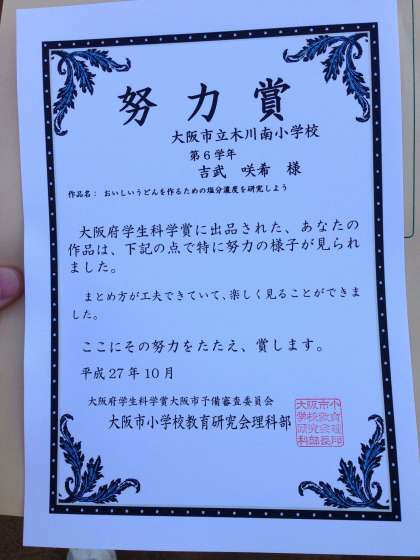 努力賞
大阪市立木川南小学校
第6学年
吉武 咲希 様
作品名: おいしいうどんを作るための塩分濃度を研究しよう
大阪府学生科学賞に出品された、あなたの
作品は、下記の点で特に努力の様子が見られ
ました。
まとめ方が工夫できていて、楽しく見ることができま
した。
ここにその努力をたたえ、賞します。
平成27年10月
大阪府学生科学賞大阪市予備審査委員会
大阪市小学校教育研究会理科部
大阪市小
学校教育
研究会理
科部長印